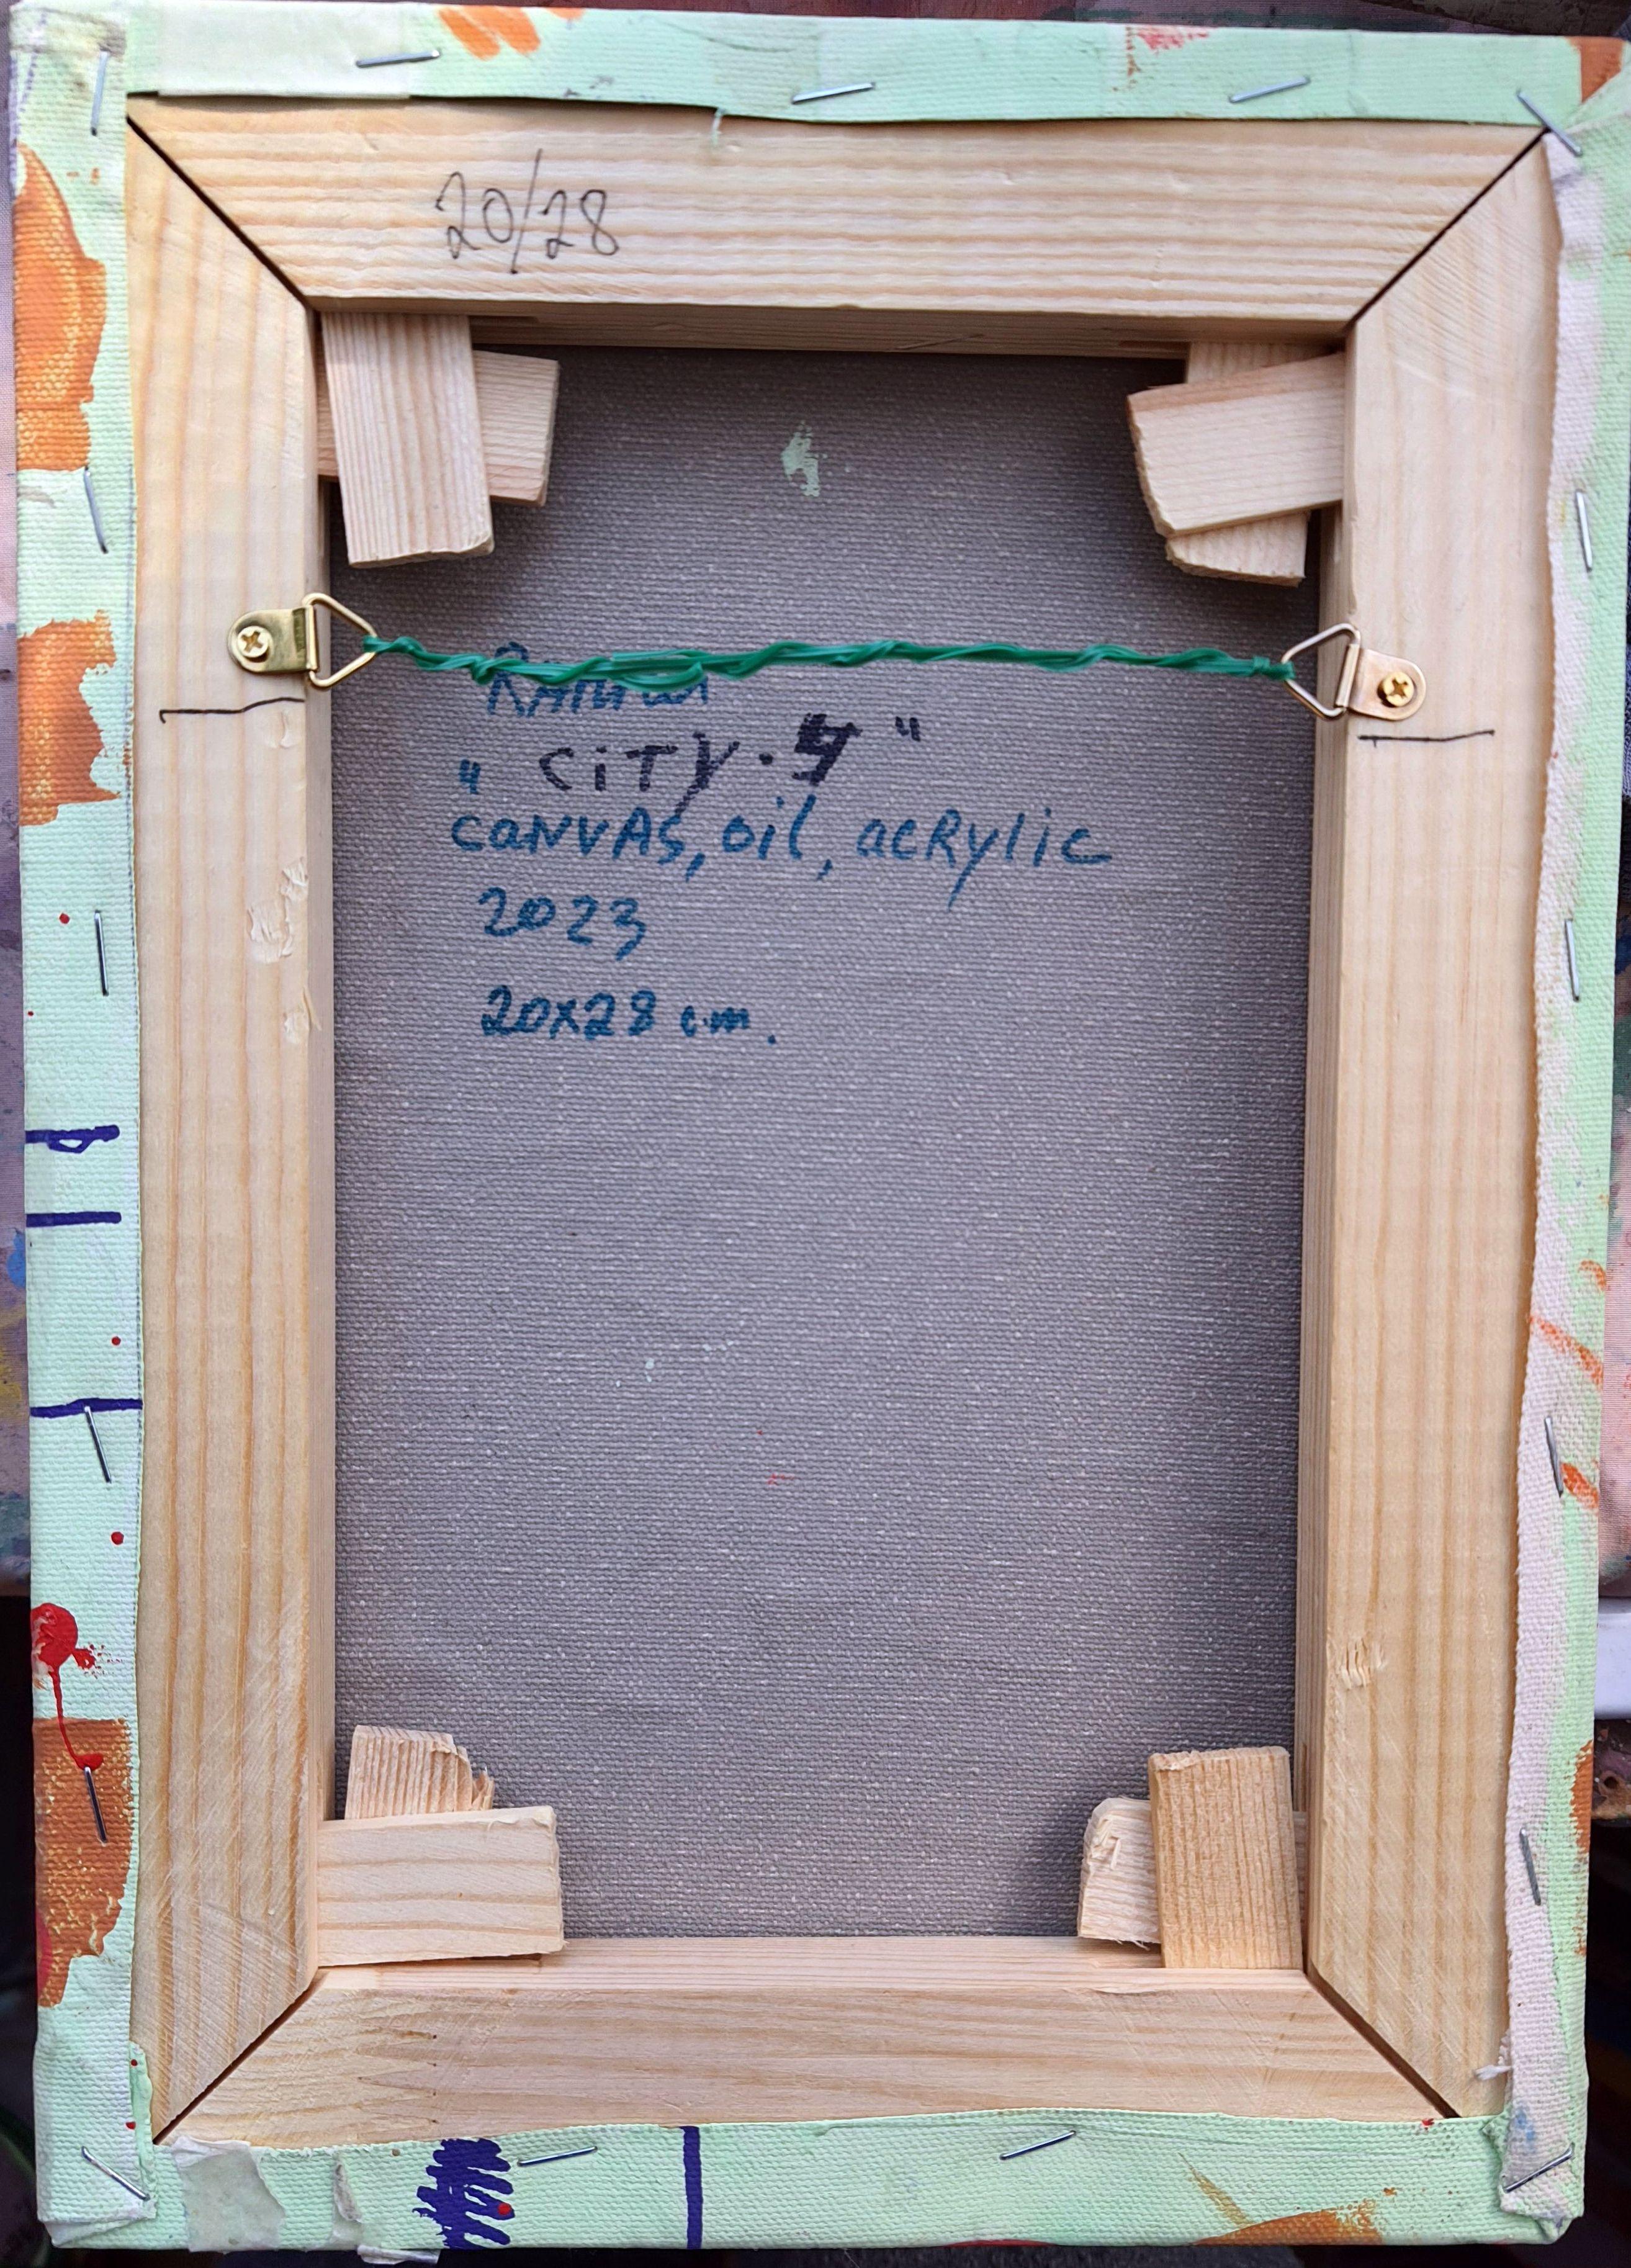 20/28
" CiTY.
CANVAS, oil, acRylic
2023
20x28 c.m.